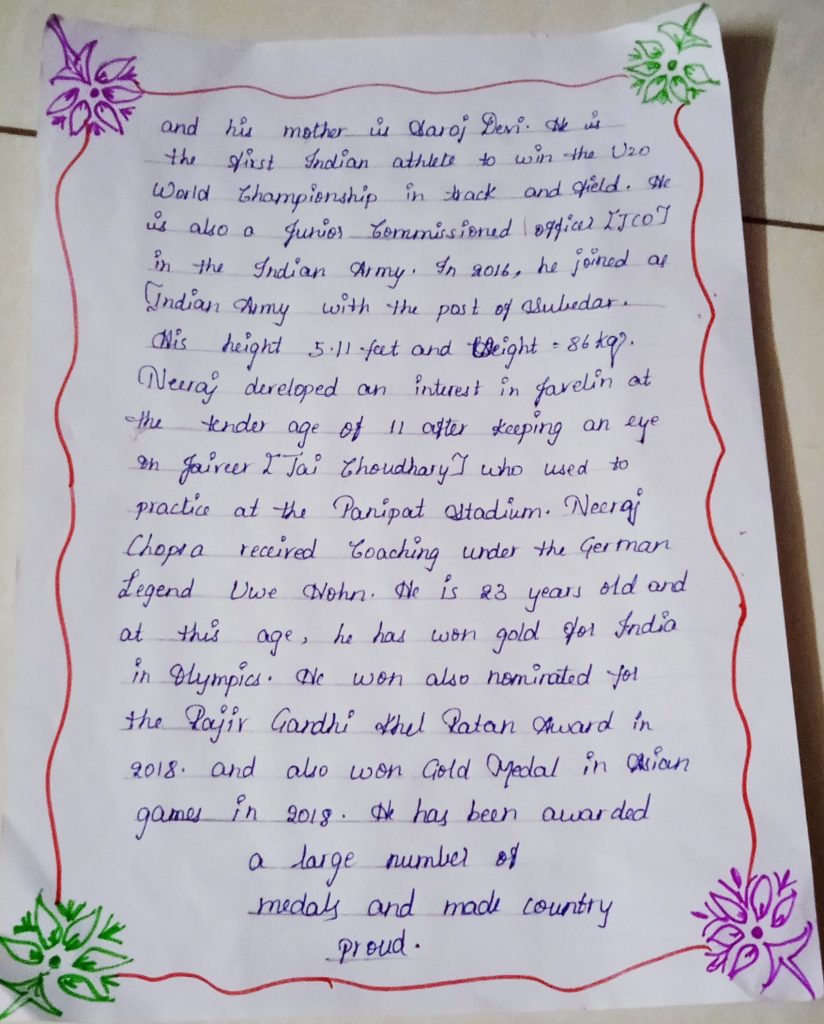 and his mother is Saroj Devi. He is
the first Indian athlete to win the U20
World Championship in track and field. He
is also a Junior Commissioned officer [JCO]
in the Indian Army. In 2016, he joined as
Indian Army with the post of Subedar.
His height 5.11 feet and Weight = 86 kg.
Neeraj developed an interest in javelin at
the tender age of 11 after keeping an eye
on Jaiveer [Jai Choudhary] who used to
practice at the Panipat Stadium. Neeraj
Chopra received Coaching under the German
Legend Uwe Hohn. He is 23 years old and
at this age, he has won gold for India
in Olympics. He won also nominated for
the Rajiv Gandhi Khel Ratan Award in
2018. and also won Gold Medal in Asian
games in 2018. He has been awarded
a large number of
medals and made country
proud.